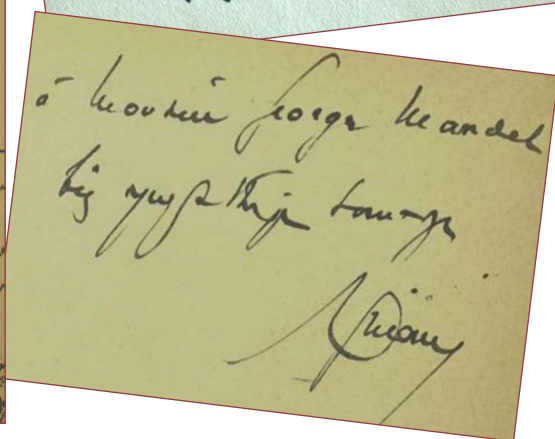 à Monsieur Georges Mandel
très sympathique hommage